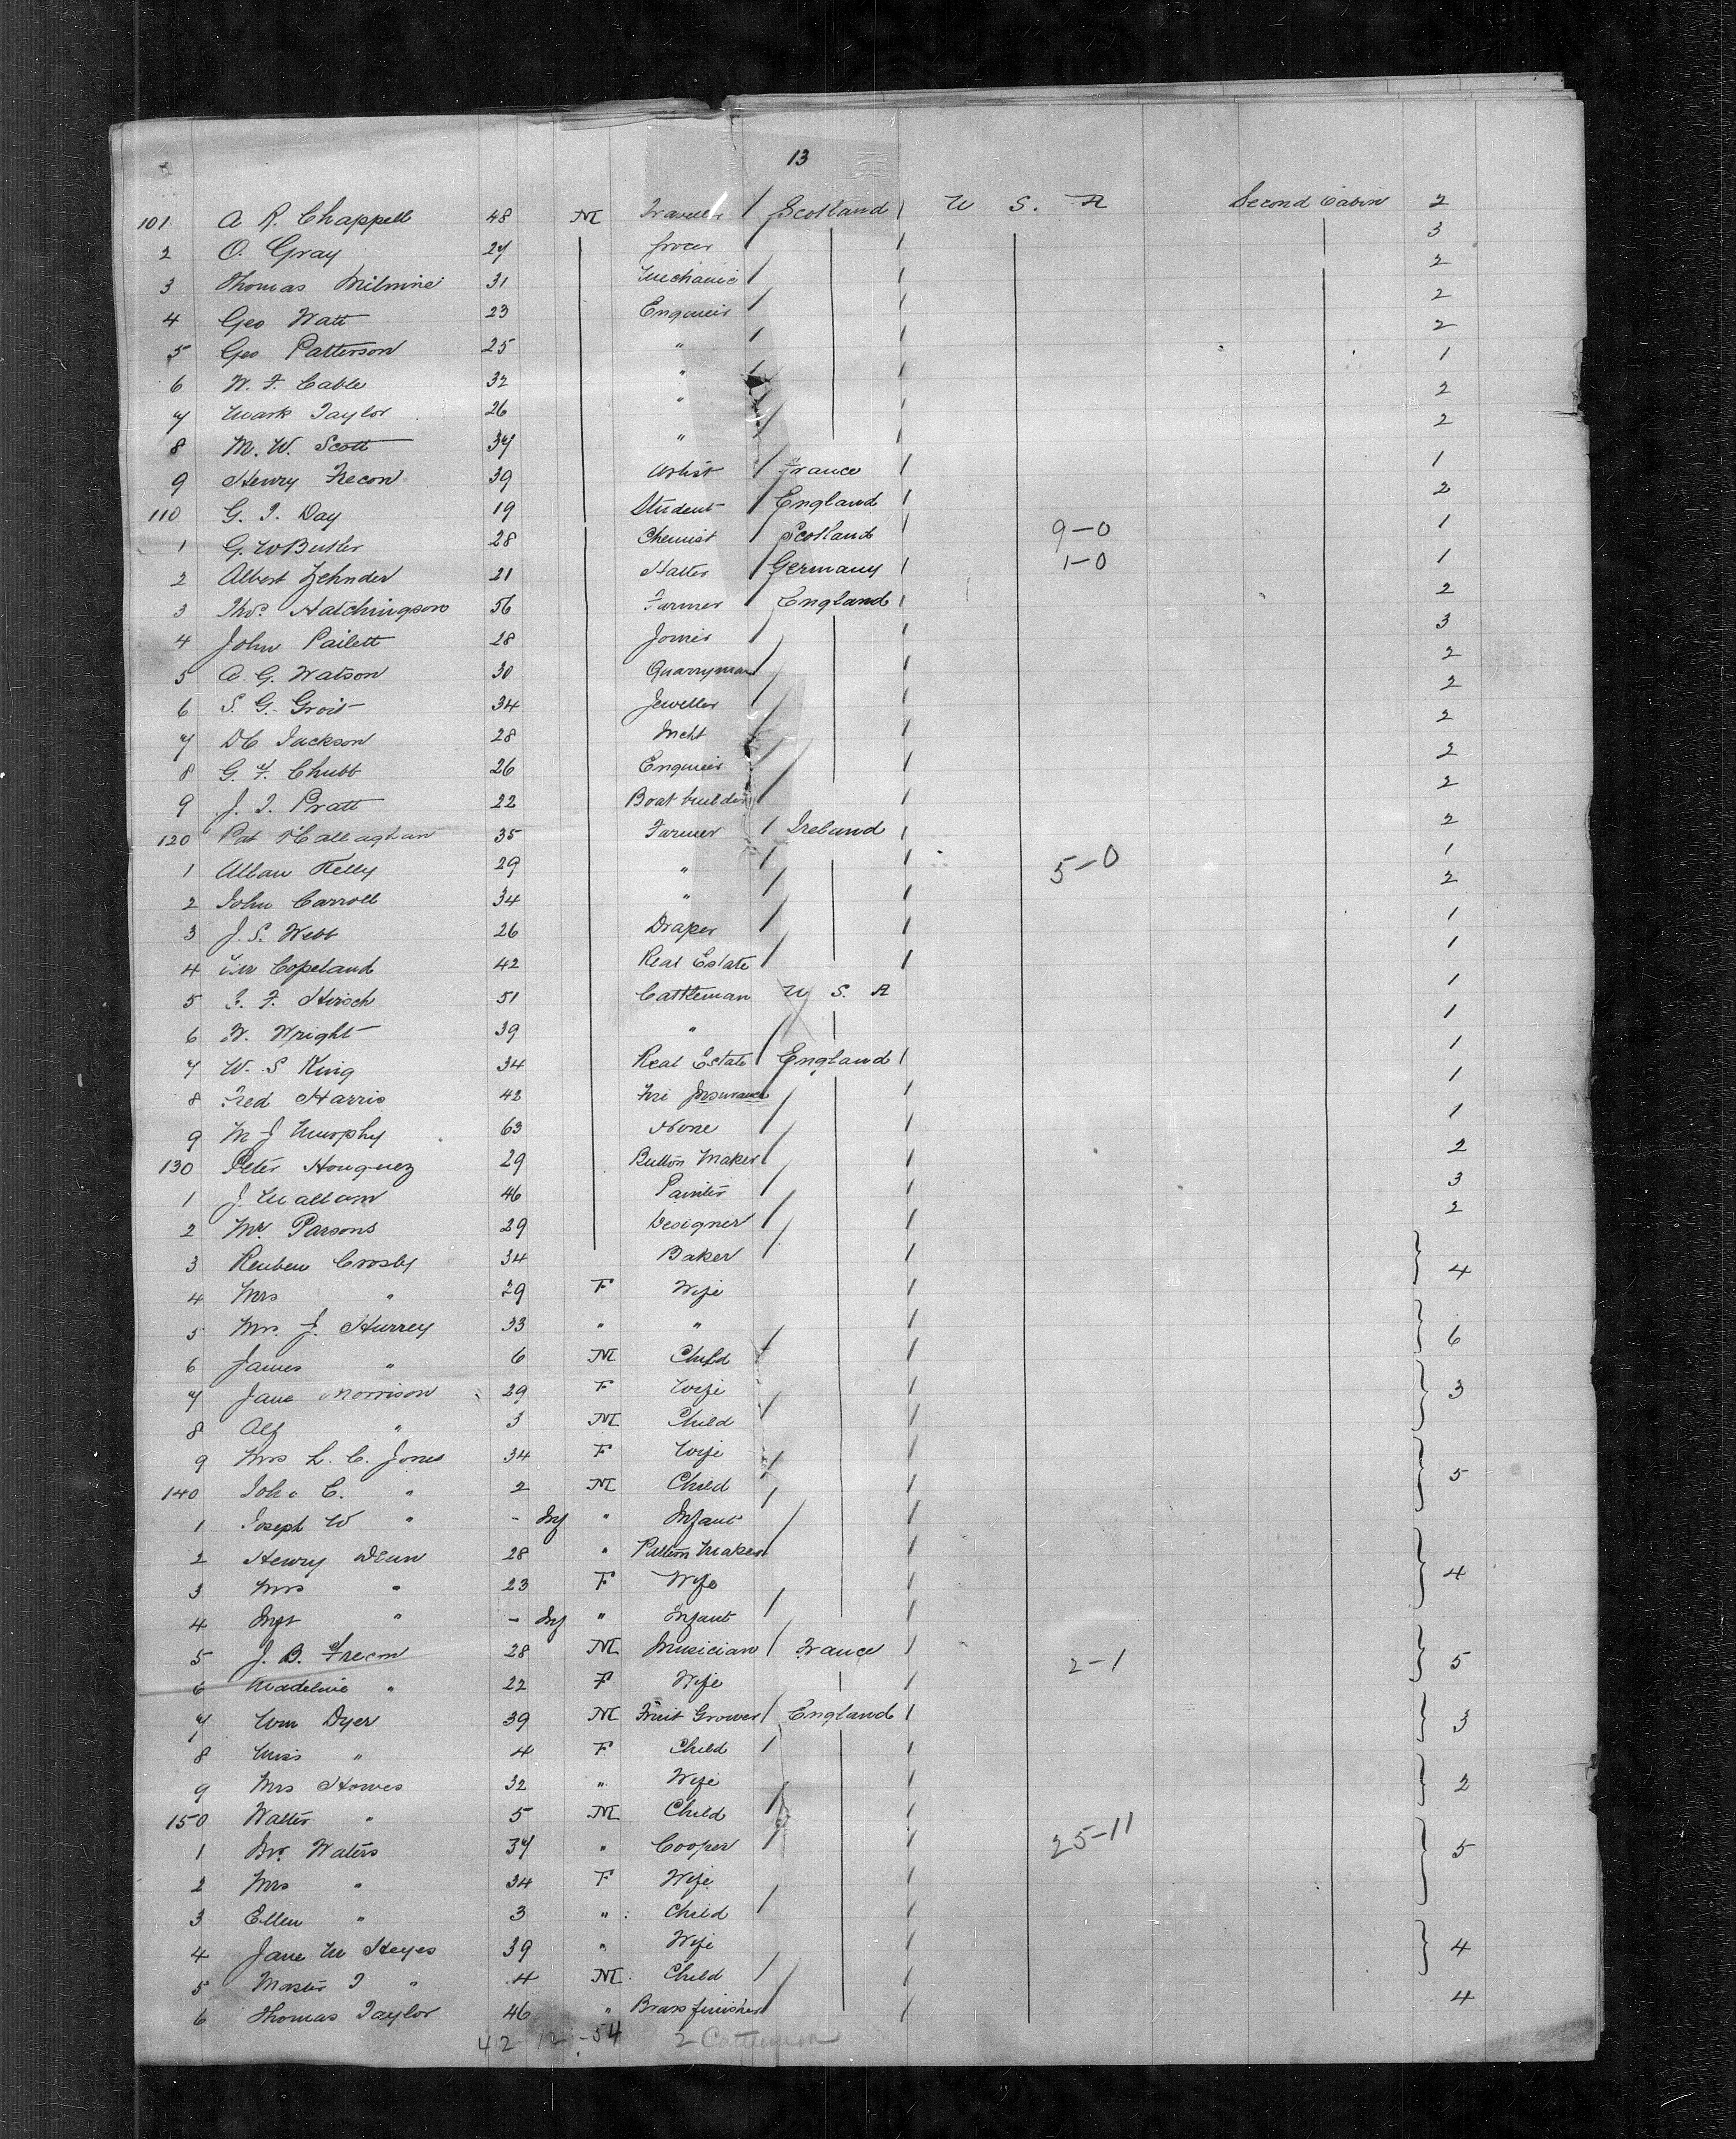 13
101 A R. Chappell 48 M Traveller / Scotland / U S. A Second Cabin 2
2 O. Gray 27 Grocer / / 3
3 Thomas Milmine 31 Mechanic / / 2
4 Geo Watt 23 Engineer / / 2
5 Geo Patterson 25 " / / 2
6 W. F. Cable 32 " / / 1
7 Mark Taylor 26 " / / 2
8 M. W. Scott 37 " / / 2
9 Henry Frecon 39 Artist / France / 1
110 G. T. Day 19 Student / England / 2
1 G. W Butler 28 Chemist / Scotland / 9-0 1
2 Albert Zehnder 21 Hatter / Germany / 1-0 1
3 Thos. Hatchingson 56 Farmer / England / 2
4 John Pailett 28 Joiner / / 3
5 A. G. Watson 30 Quarryman / / 2
6 S. G. Groit 34 Jeweller / / 2
7 D C Jackson 28 Mcht / / 2
8 G. F. Chubb 26 Engineer / / 2
9 J. T. Pratt 22 Boat builder / / 2
120 Pat O'Callaghan 35 Farmer / Ireland / 2
1 Allan Kelly 29 " / / 5-0 1
2 John Carroll 34 " / / 2
3 J. S. Webb 26 Draper / / 1
4 Wm Copeland 42 Real Estate / / 1
5 F. Hirsch 51 Cattleman U S. A 1
6 W. Wright 39 " 1
7 W. S King 34 Real Estate / England / 1
8 Fred Harris 42 Fire Insurance / / 1
9 M J Murphy 63 None / / 1
130 Peter Houquez 29 Button Maker / / 2
1 J. Mallam 46 Painter / / 3
2 Mr. Parsons 29 Designer / / 2
3 Reuben Crosby 34 Baker / / } 4
4 Mrs " 29 F Wife /
5 Mrs. J. Hurrey 33 " " / } 6
6 James " 6 M Child / /
7 Jane Morrison 29 F Wife / } 3
8 Alf " 3 M Child / /
9 Mrs L. C. Jones 34 F Wife / / } 5
140 John C. " 2 M Child / /
1 Joseph W " - Inf " Infant / /
2 Henry Dean 28 " Pattern Maker / / } 4
3 Mrs " 23 F Wife /
4 Inft " - Inf " Infant / /
5 J. B. Frecon 28 M Musician / France / 2-1 } 5
6 Madeline " 22 F Wife /
7 Wm Dyer 39 M Fruit Grower / England / } 3
8 Miss " 4 F Child / /
9 Mrs Howes 32 " Wife / } 2
150 Walter " 5 M Child / /
1 Waters 37 " Cooper / / 25-11 } 5
2 Mrs " 34 F Wife /
3 Ellen " 3 " Child / /
4 Jane M Heyes 39 " Wife / } 4
5 Master T " 4 M Child / /
6 Thomas Taylor 46 " Brass finisher / / 4
42 12 - 54 2 Cattlemen